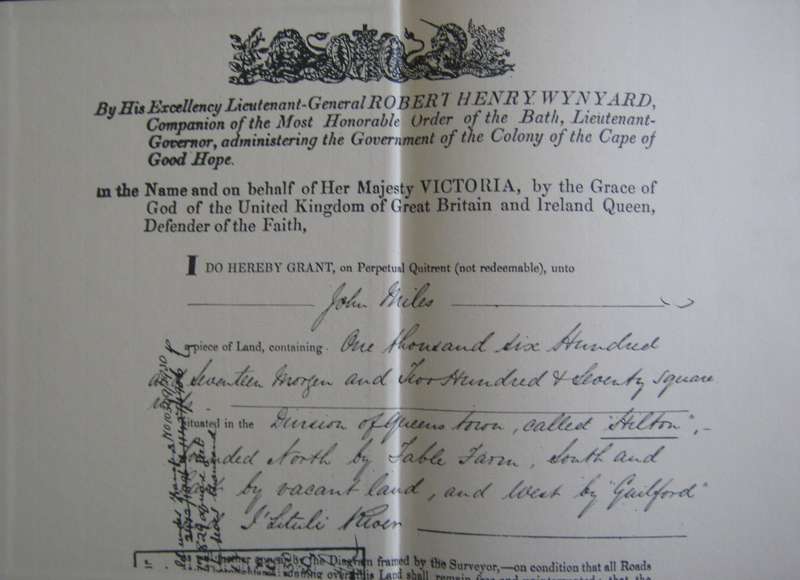 By His Excellency Lieutenant-General ROBERT HENRY WYNYARD,
Companion of the Most Honorable Order of the Bath, Lieutenant-
Governor, administering the Government of the Colony of the Cape of
Good Hope.
In the Name and on behalf of Her Majesty VICTORIA, by the Grace of
God of the United Kingdom of Great Britain and Ireland Queen,
Defender of the Faith,
I DO HEREBY GRANT, on Perpetual Quitrent (not redeemable), unto
John Miles
a piece of Land, containing One thousand six Hundred
and Seventeen Morgen and Two Hundred & Seventy square
situated in the Division of Queenstown, called "Hilton",-
North by Table Farm, South and
by vacant land, and West by "Guilford"
River
by the Diagram framed by the Surveyor,—on condition that all Roads
over this Land shall remain free and